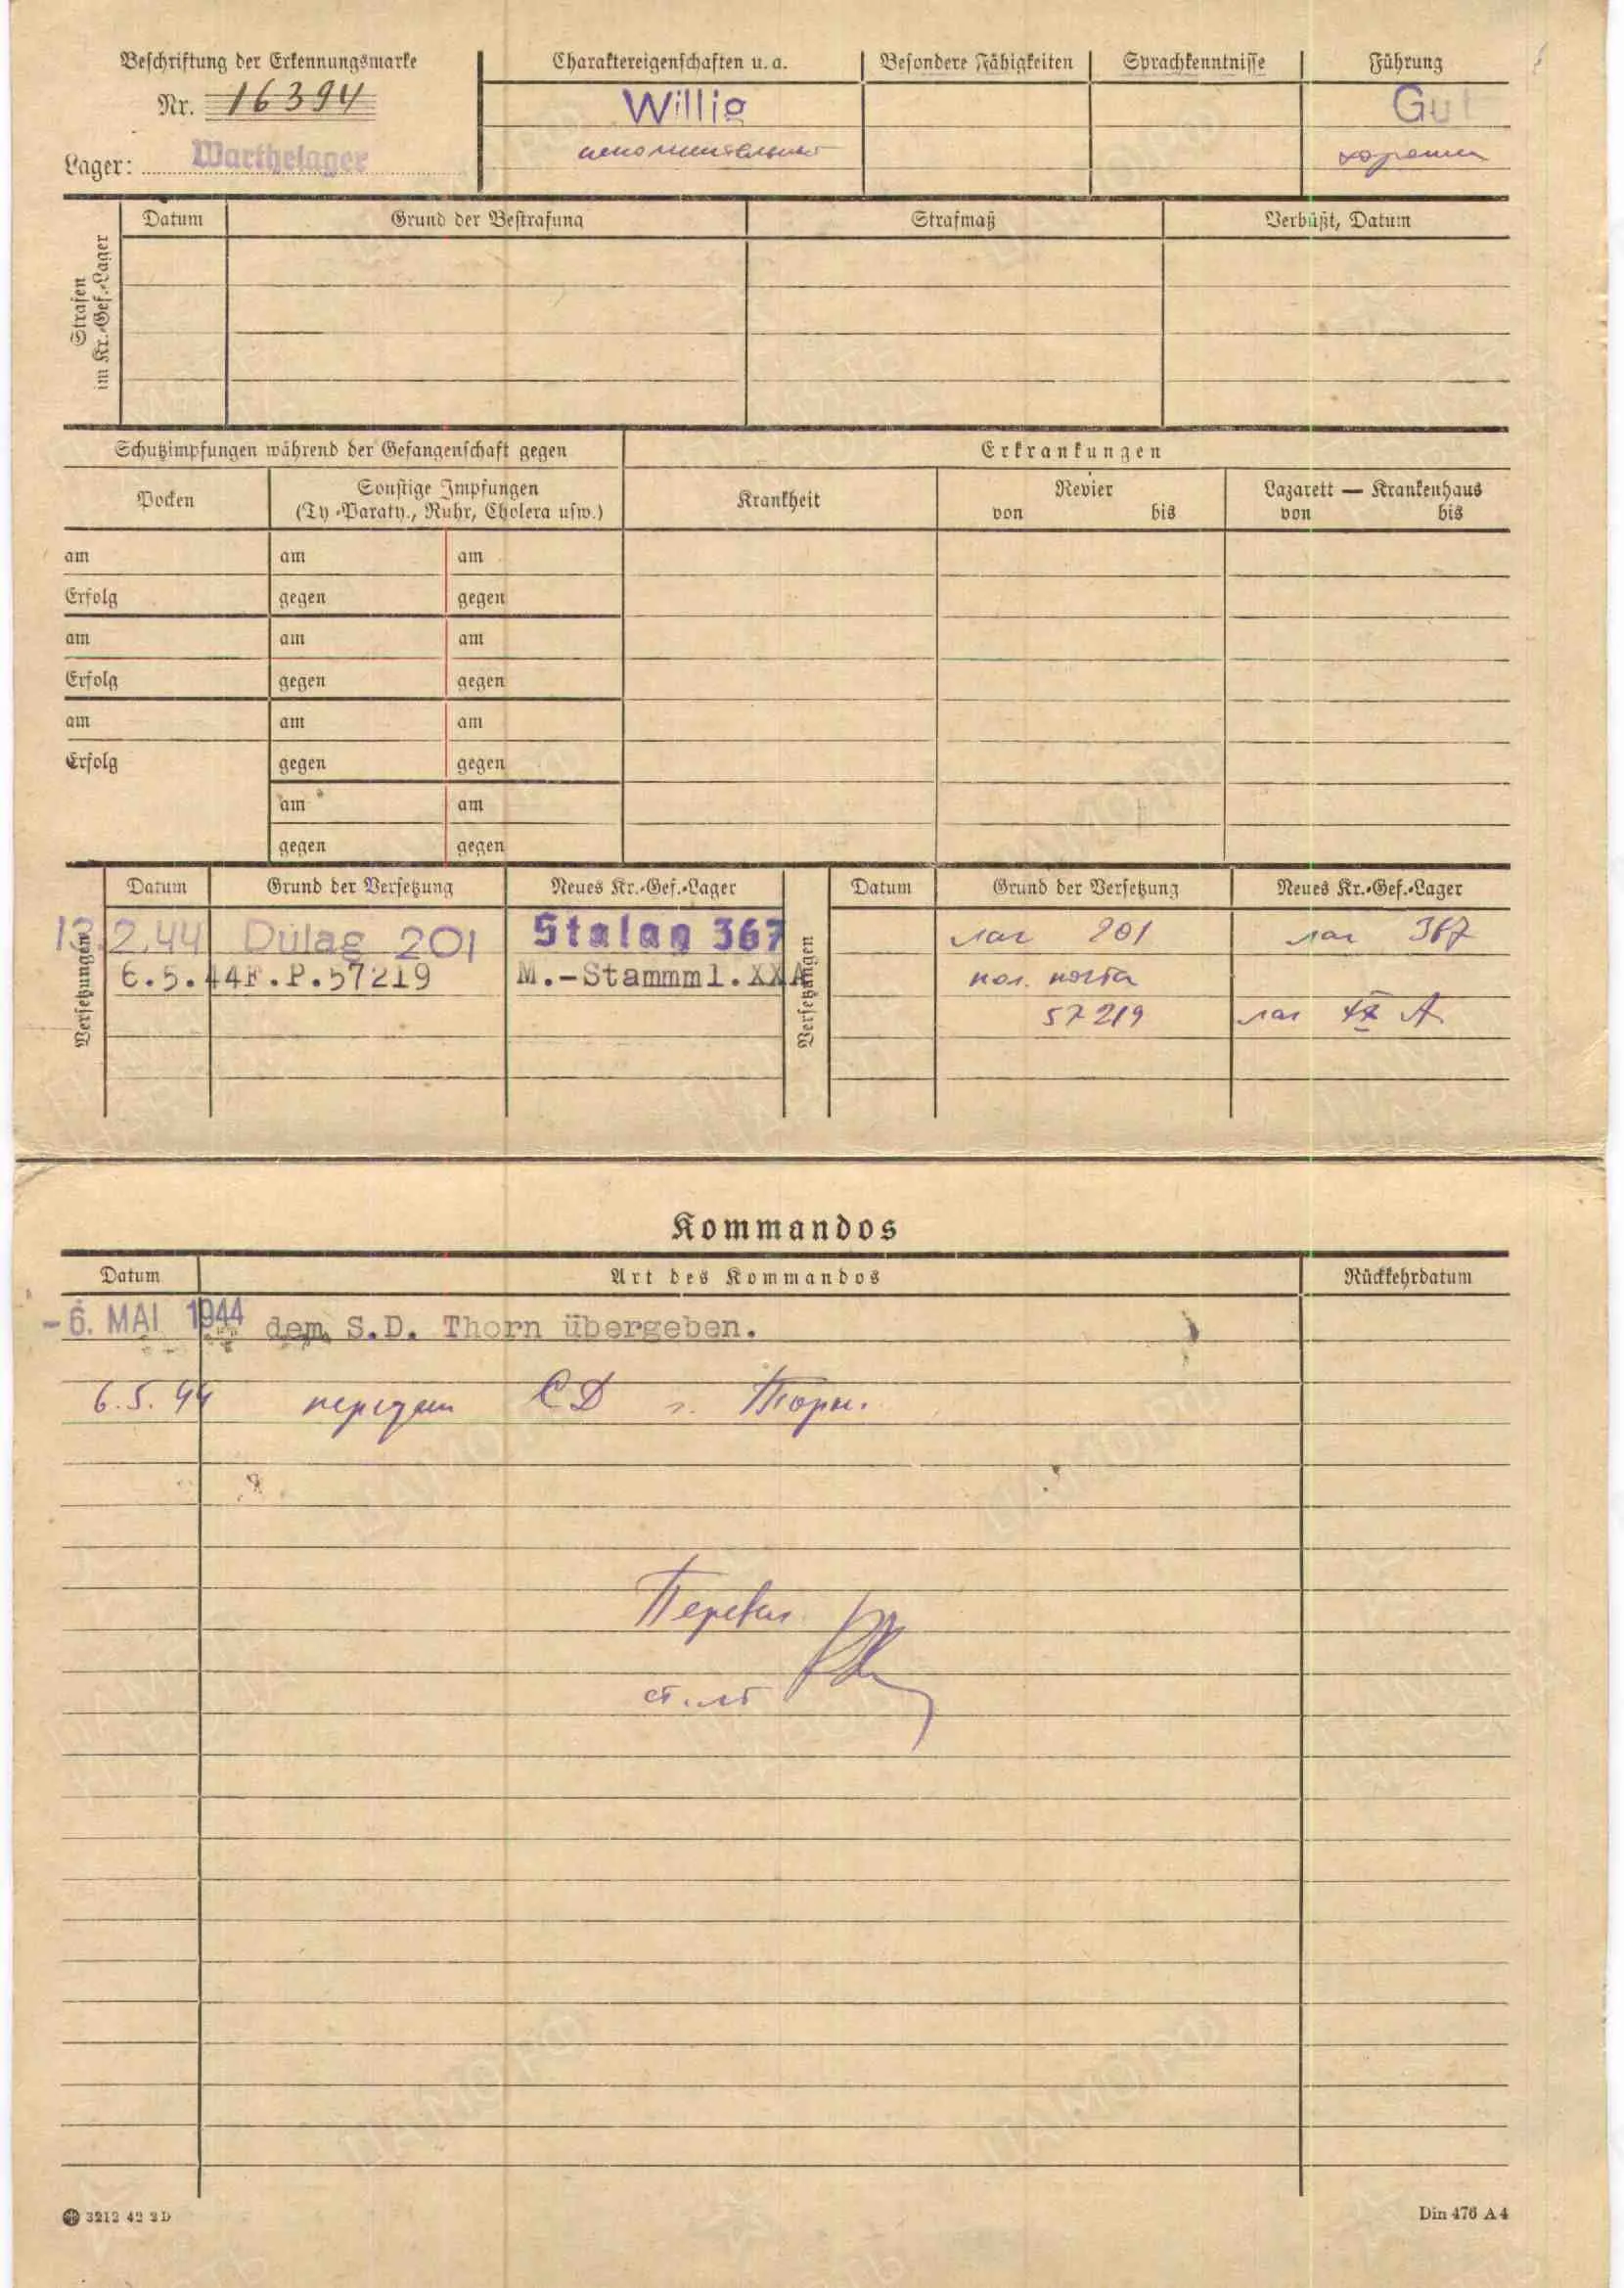 Beschriftung der Erkennungsmarke
Nr. 16394
Lager: Warthelager
Charaktereigenschaften u. a.
Willig
исполнительный
Besondere Fähigkeiten
Sprachkenntnisse
Führung
Gut
хорошии
Strafen
im Kr.-Gef.-Lager
Datum
Grund der Bestrafung
Strafmaß
Verbüßt, Datum
Schutzimpfungen während der Gefangenschaft gegen
Erkrankungen
Pocken
Sonstige Impfungen
(Ty-Paraty., Ruhr, Cholera usw.)
Krankheit
Revier
von bis
Lazarett — Krankenhaus
von bis
am am am
Erfolg gegen gegen
am am am
Erfolg gegen gegen
am am am
Erfolg gegen gegen
am am
gegen gegen
Versetzungen
Datum Grund der Versetzung Neues Kr.-Gef.-Lager
13.2.44 Dulag 201 Stalag 367
6.5.44 F.P.57219 M.-Stamml. XXA
Versetzungen
Datum Grund der Versetzung Neues Kr.-Gef.-Lager
лаг 201 лаг 367
пол. почта
57219 лаг XX A
Kommandos
Datum Art des Kommandos Rückkehrdatum
-6. MAI 1944 dem S.D. Thorn übergeben.
6.5.44 передан СД г. Торн.
Перевел
ст. лт
3212 42 2D
Din 476 A4